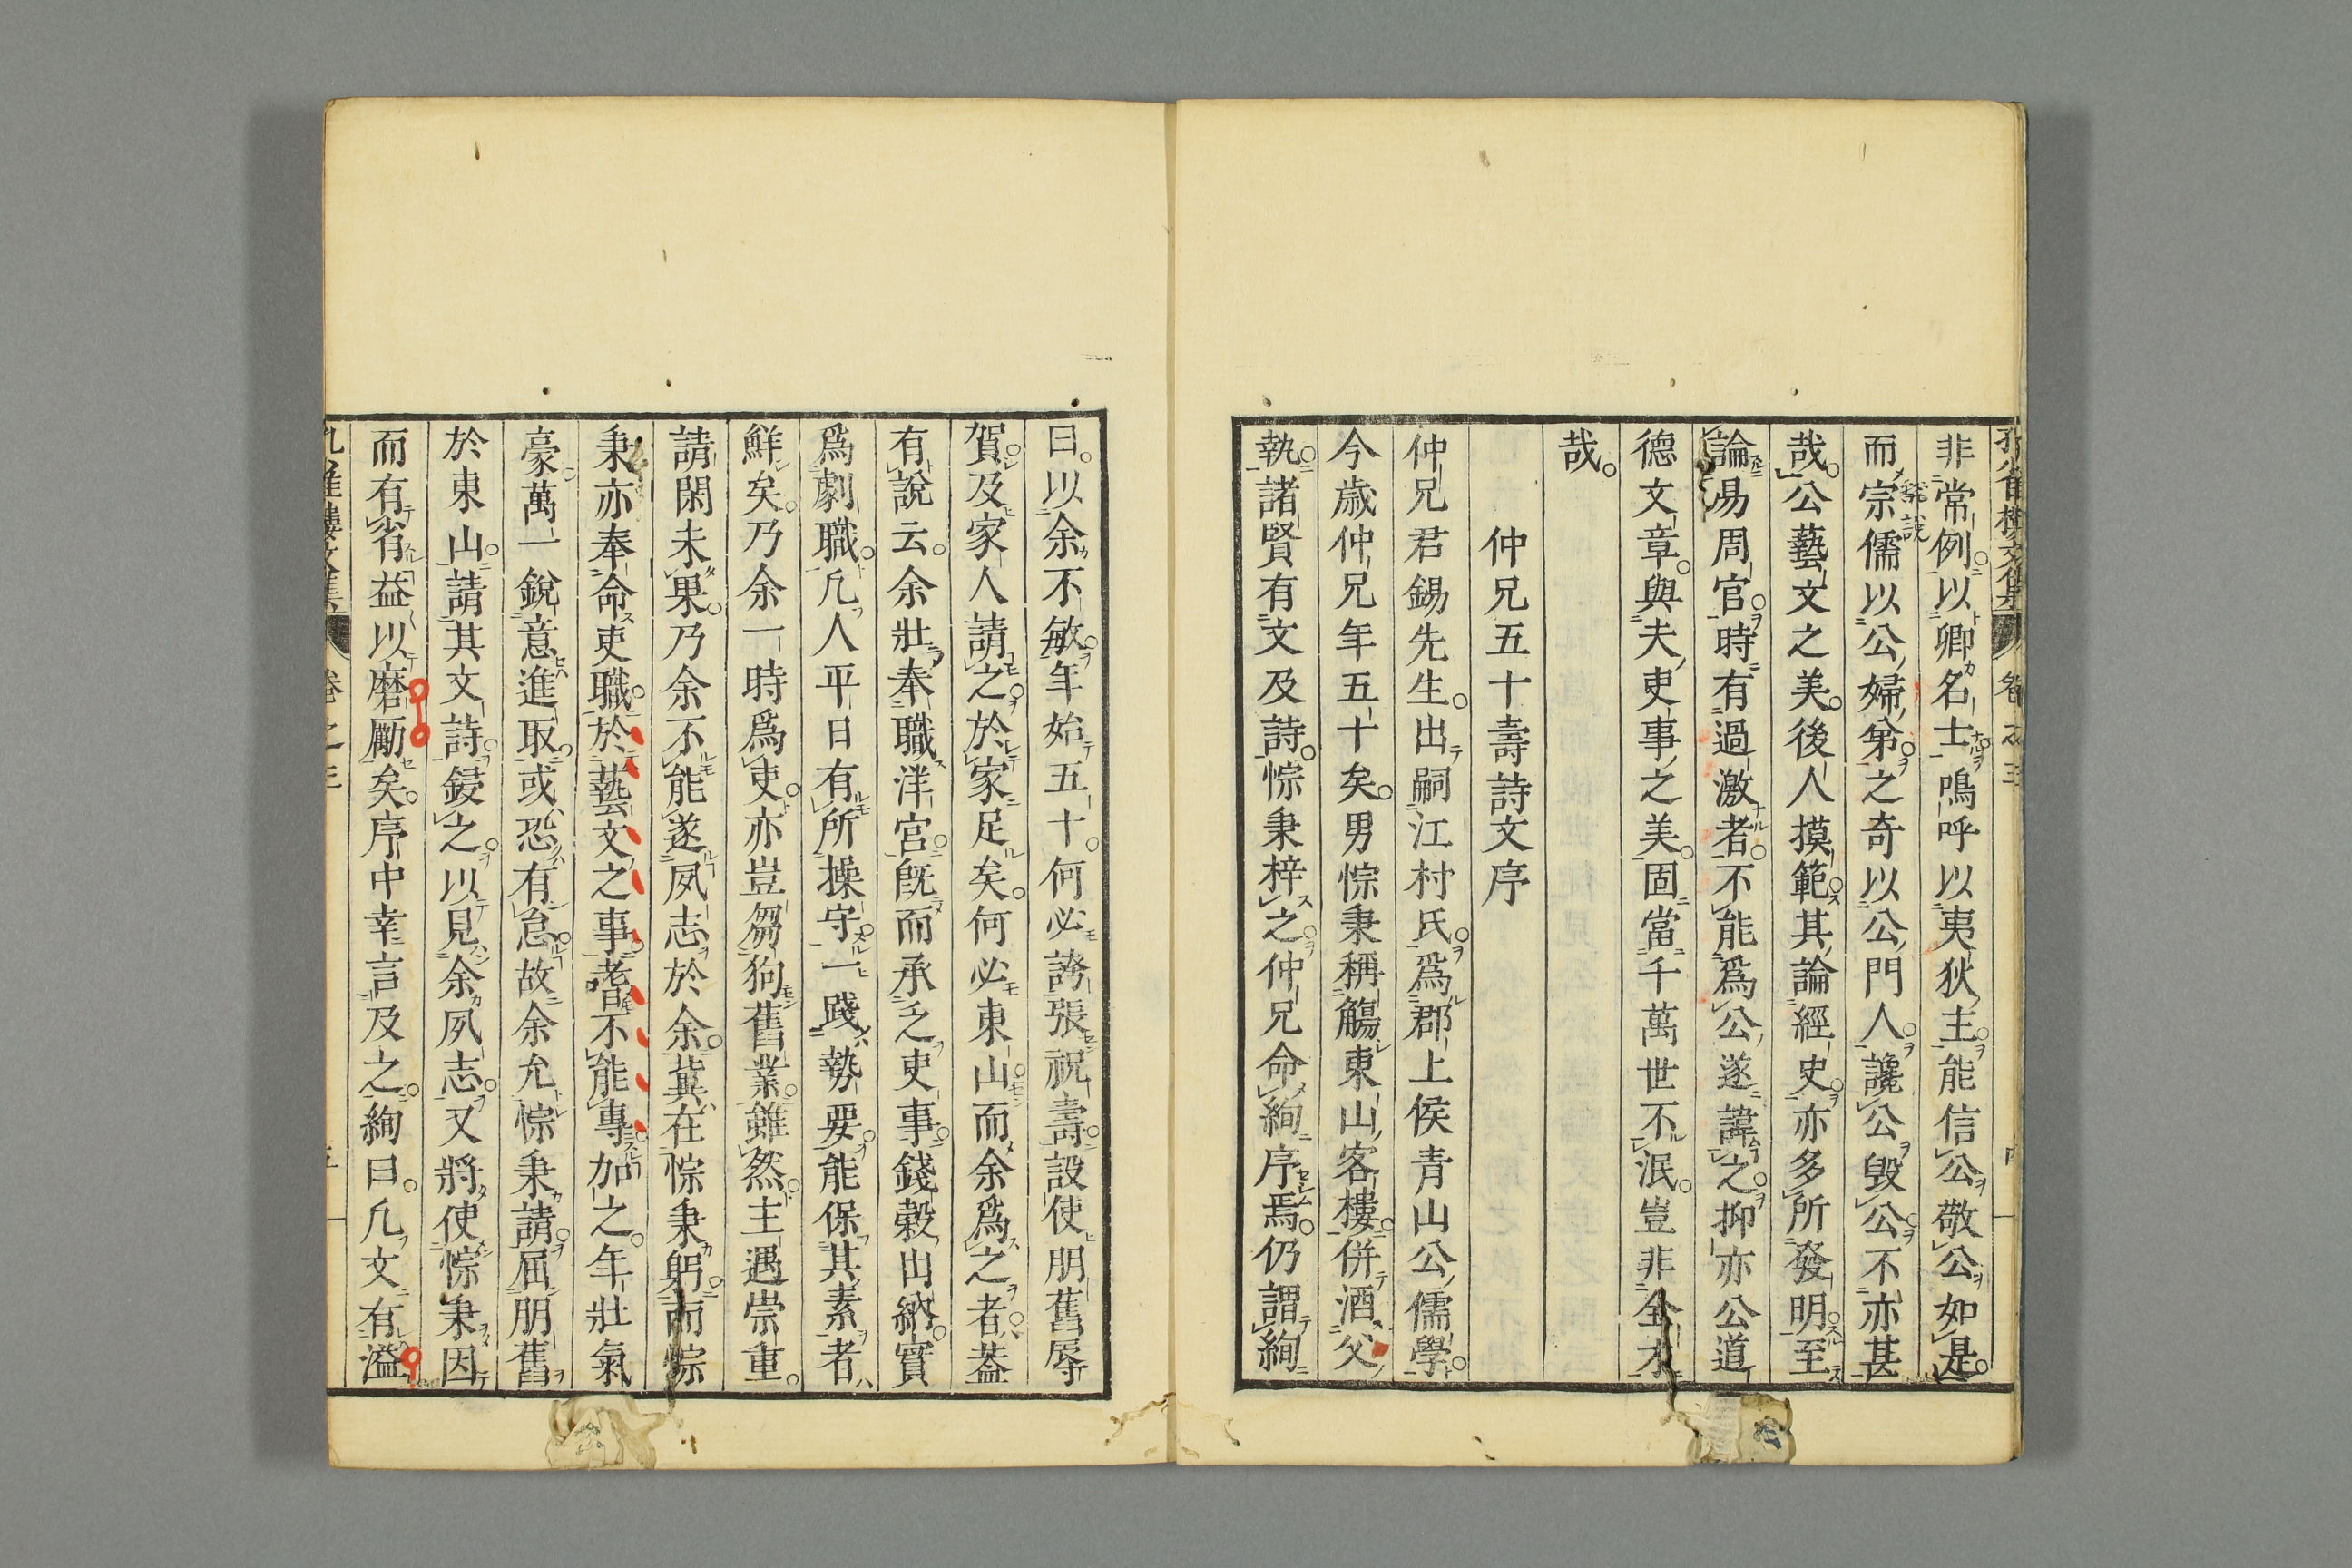 非常例以卿名士鳴呼以夷狄主能信公敬公如是
而宗儒以公婦㐧之奇以公門人讒公毀公不亦甚
哉公藝文之美後人摸範其論經史亦多所發明至
論易周官時有過激者不能爲公遂諱之抑亦公道
德文章與夫吏事之美固當千萬世不泯豈非全才
哉
仲兄五十壽詩文序
仲兄君錫先生出嗣江村氏爲郡上侯青山公儒學
今歳仲兄年五十矣男悰秉稱觴東山客樓併酒父
執諸賢有文及詩悰秉梓之仲兄命絢序焉仍謂絢
曰以余不敏年始五十何必誇張祝壽設使朋舊辱
賀及家人請之於家足矣何必東山而余爲之者葢
有說云余壯奉職泮宮旣而承乏吏事錢穀出納實
爲劇職凢人平日有所操守一踐勢要能保其素者
鮮矣乃余一時爲吏亦豈芻狗舊業雖然主遇崇重
請閑未果乃余不能遂夙志於余冀在悰秉躬而悰
秉亦奉命吏職於藝文之事耆不能專加之年壯氣
豪萬一銳意進取或恐有怠故余允悰秉請屈朋舊
於東山請其文詩鋟之以見余夙志又將使悰秉因
而有省益以磨勵矣序中幸言及之絢曰凢文有溢
卷之三